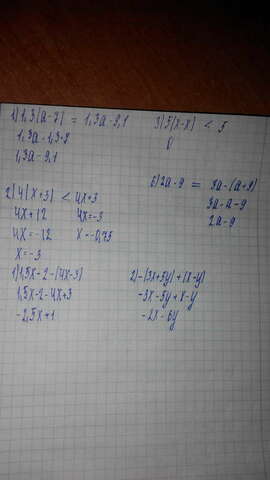 1) 1,3(a-7) = 1,3a-9,1
1,3a-1,3·7
1,3a-9,1
3) 5(x-x) < 5
0
2) 4(x+3) < 4x+3
4x+12 4x=-3
4x=-12 x=-0,75
x=-3
6) 2a-9 = 3a-(a+9)
3a-a-9
2a-9
1) 1,5x-2-(4x-3)
1,5x-2-4x+3
-2,5x+1
2) -(3x+5y)+(x-y)
-3x-5y+x-y
-2x-6y